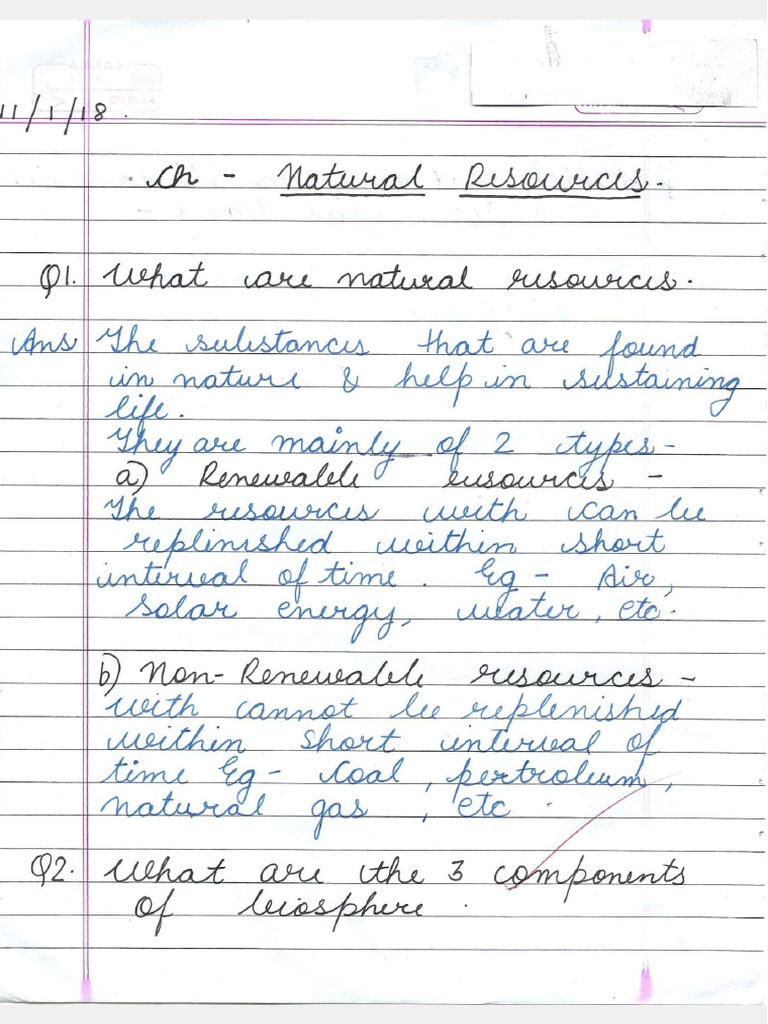 11/1/18.
Ch - Natural Resources.
Q1. What are natural resources.
Ans The substances that are found
in nature & help in sustaining
life.
They are mainly of 2 types -
a) Renewable resources -
The resources with can be
replinished within short
interval of time. Eg - Air,
solar energy, water, etc.
b) Non-Renewable resources -
with cannot be replenished
within short interval of
time Eg - Coal, pertroleum,
natural gas, etc.
Q2. What are the 3 components
of biosphere.